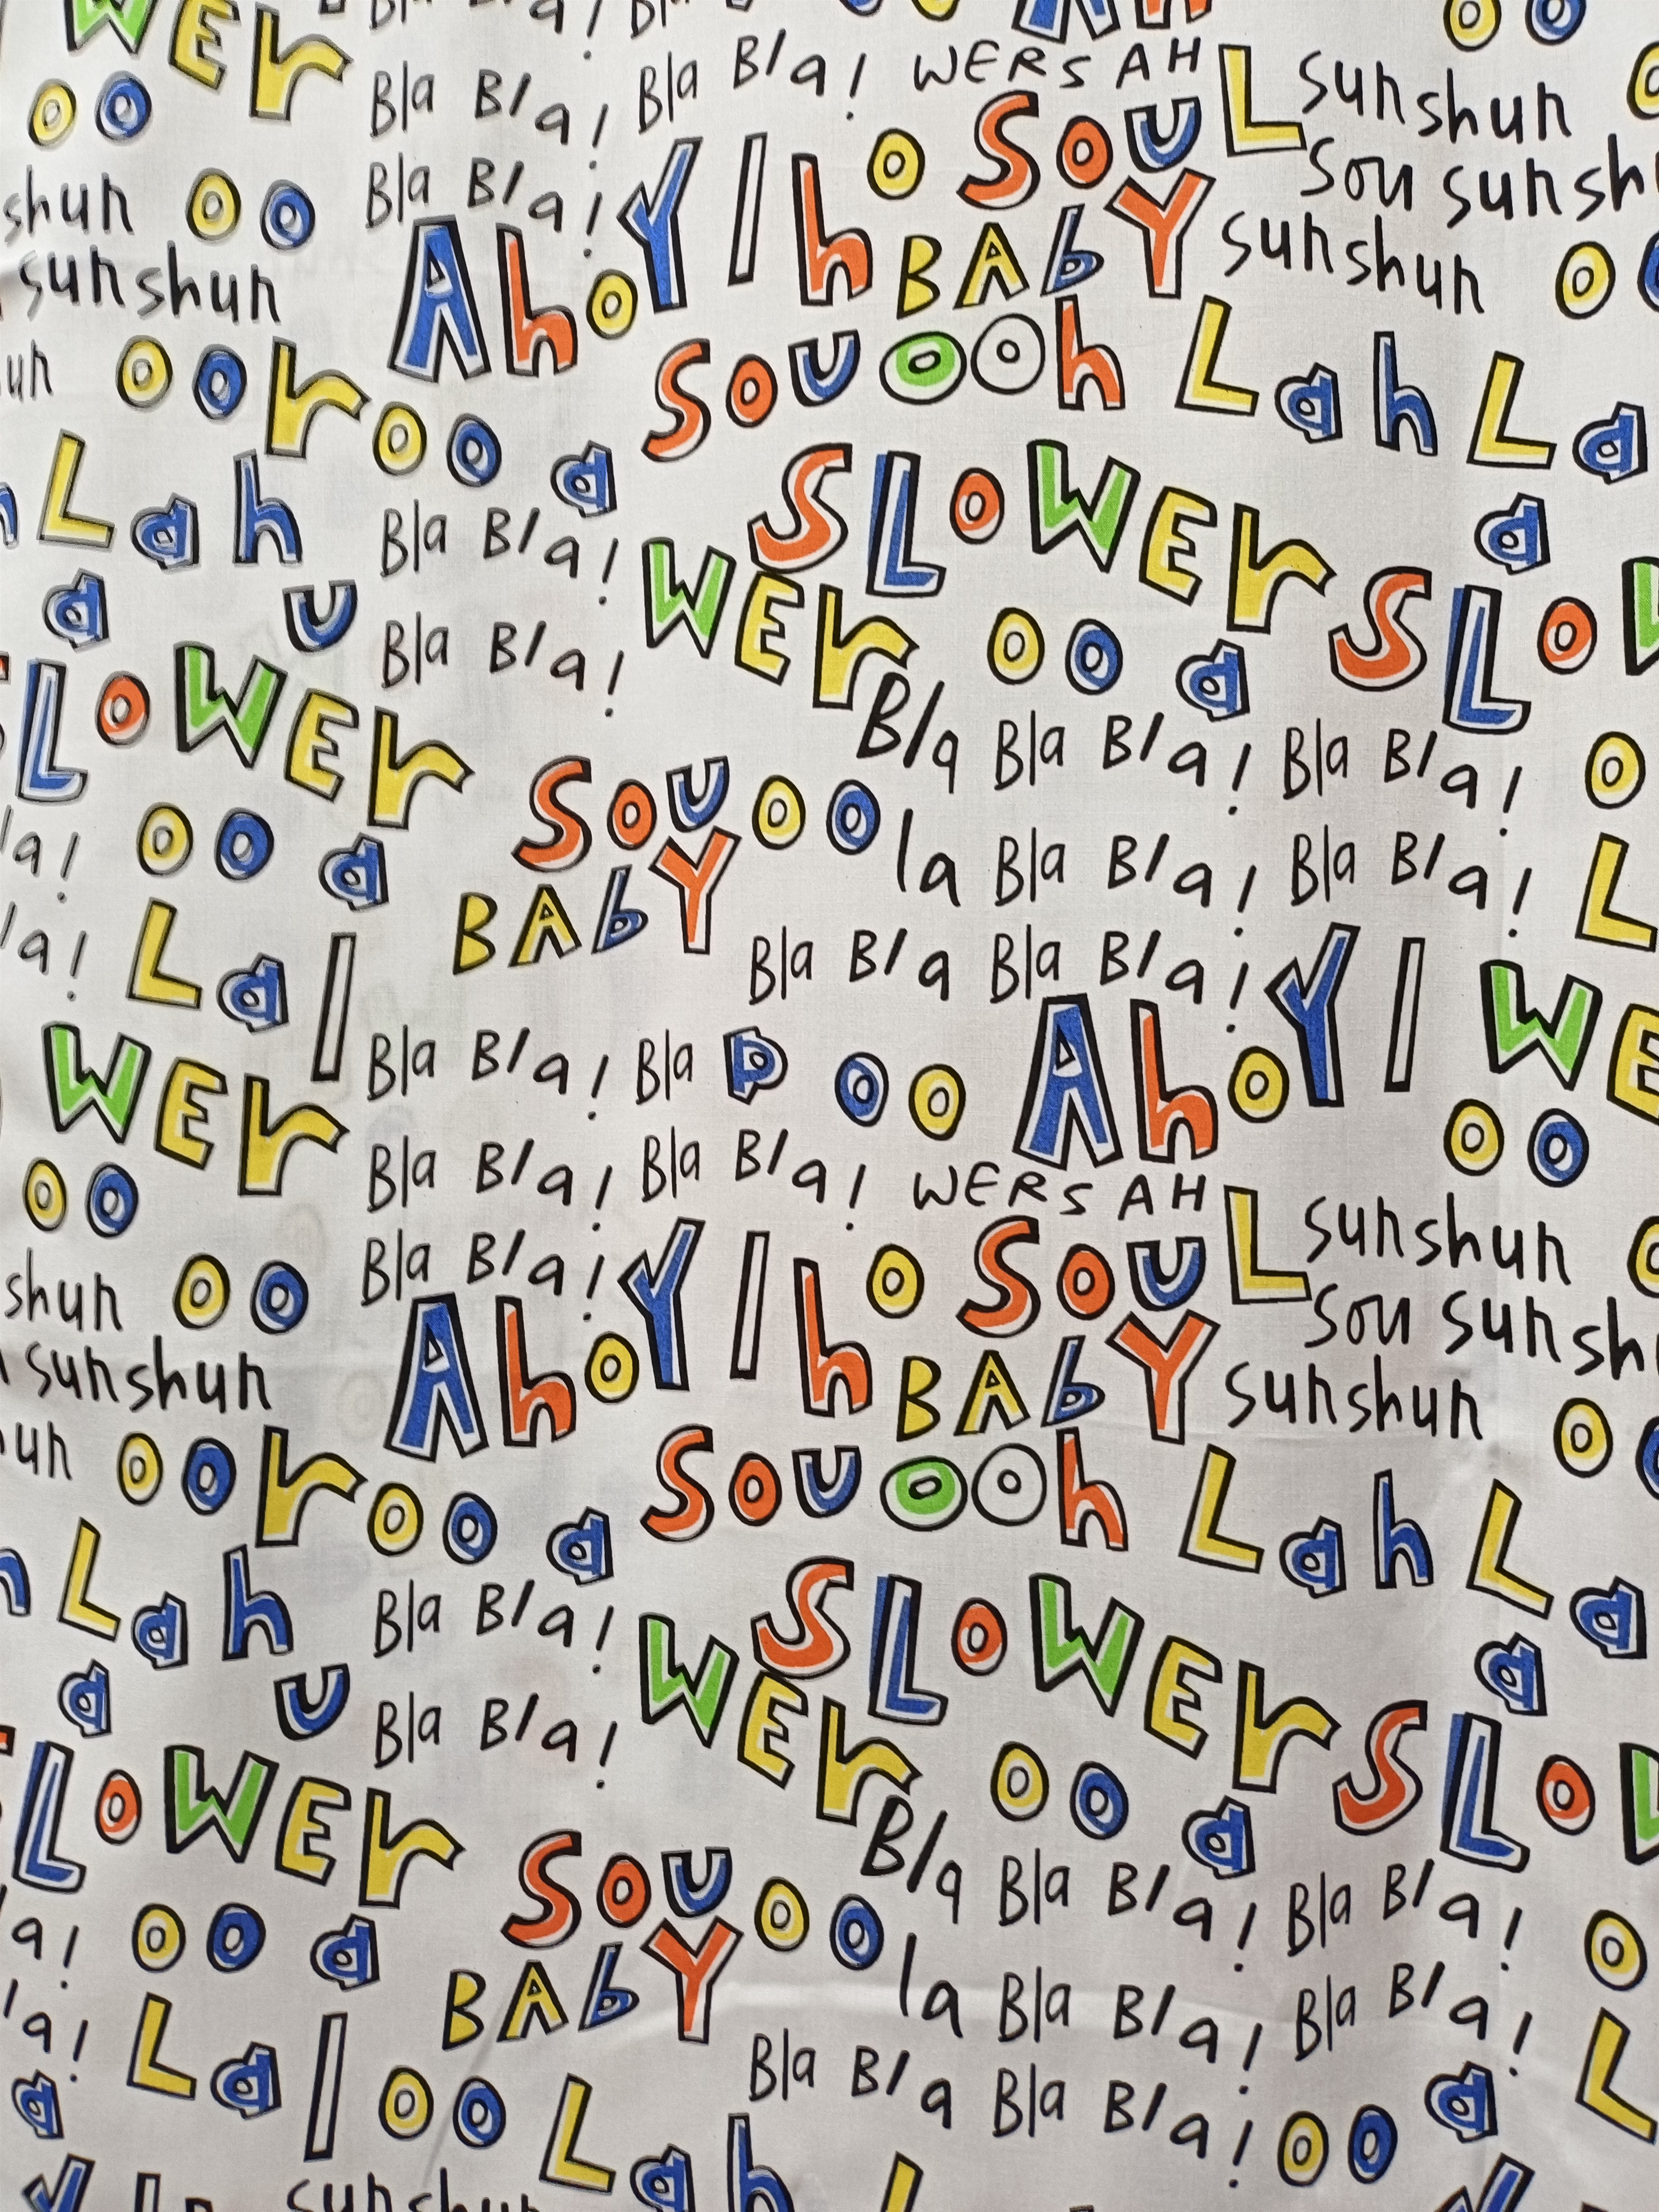 WEr Bla Bla! Bla
o o Bla Bla! Bla Bla! WERSAH L sunshun
shun o o Bla Bla! Y I h o Sou sou sunsh
sunshun Aho BAbY sunshun o
un o o r o o a Sou o o h Lah La
Lah Bla Bla! SLOWEr a
a u Bla Bla! WEr o o a SLO
LOWEr Bla Bla Bla! Bla Bla! o
a! o o a Sou o o la Bla Bla! Bla Bla! L
a! La l BAbY Bla Bla Bla Bla! Y I WE
WEr Bla Bla! Bla a o o Aho o o
o o Bla Bla! Bla Bla! WERSAH L sunshun
shun o o Bla Bla! Y I h o Sou sou sunsh
sunshun Aho BAbY sunshun o
un o o r o o a Sou o o h Lah La
Lah Bla Bla! SLOWEr a
a u Bla Bla! WEr o o a SLO
LOWEr Bla Bla Bla! Bla Bla! o
a! o o a Sou o o la Bla Bla! Bla Bla! L
a! La l BAbY Bla Bla Bla Bla! o o a
a o o Lah L
sunshun